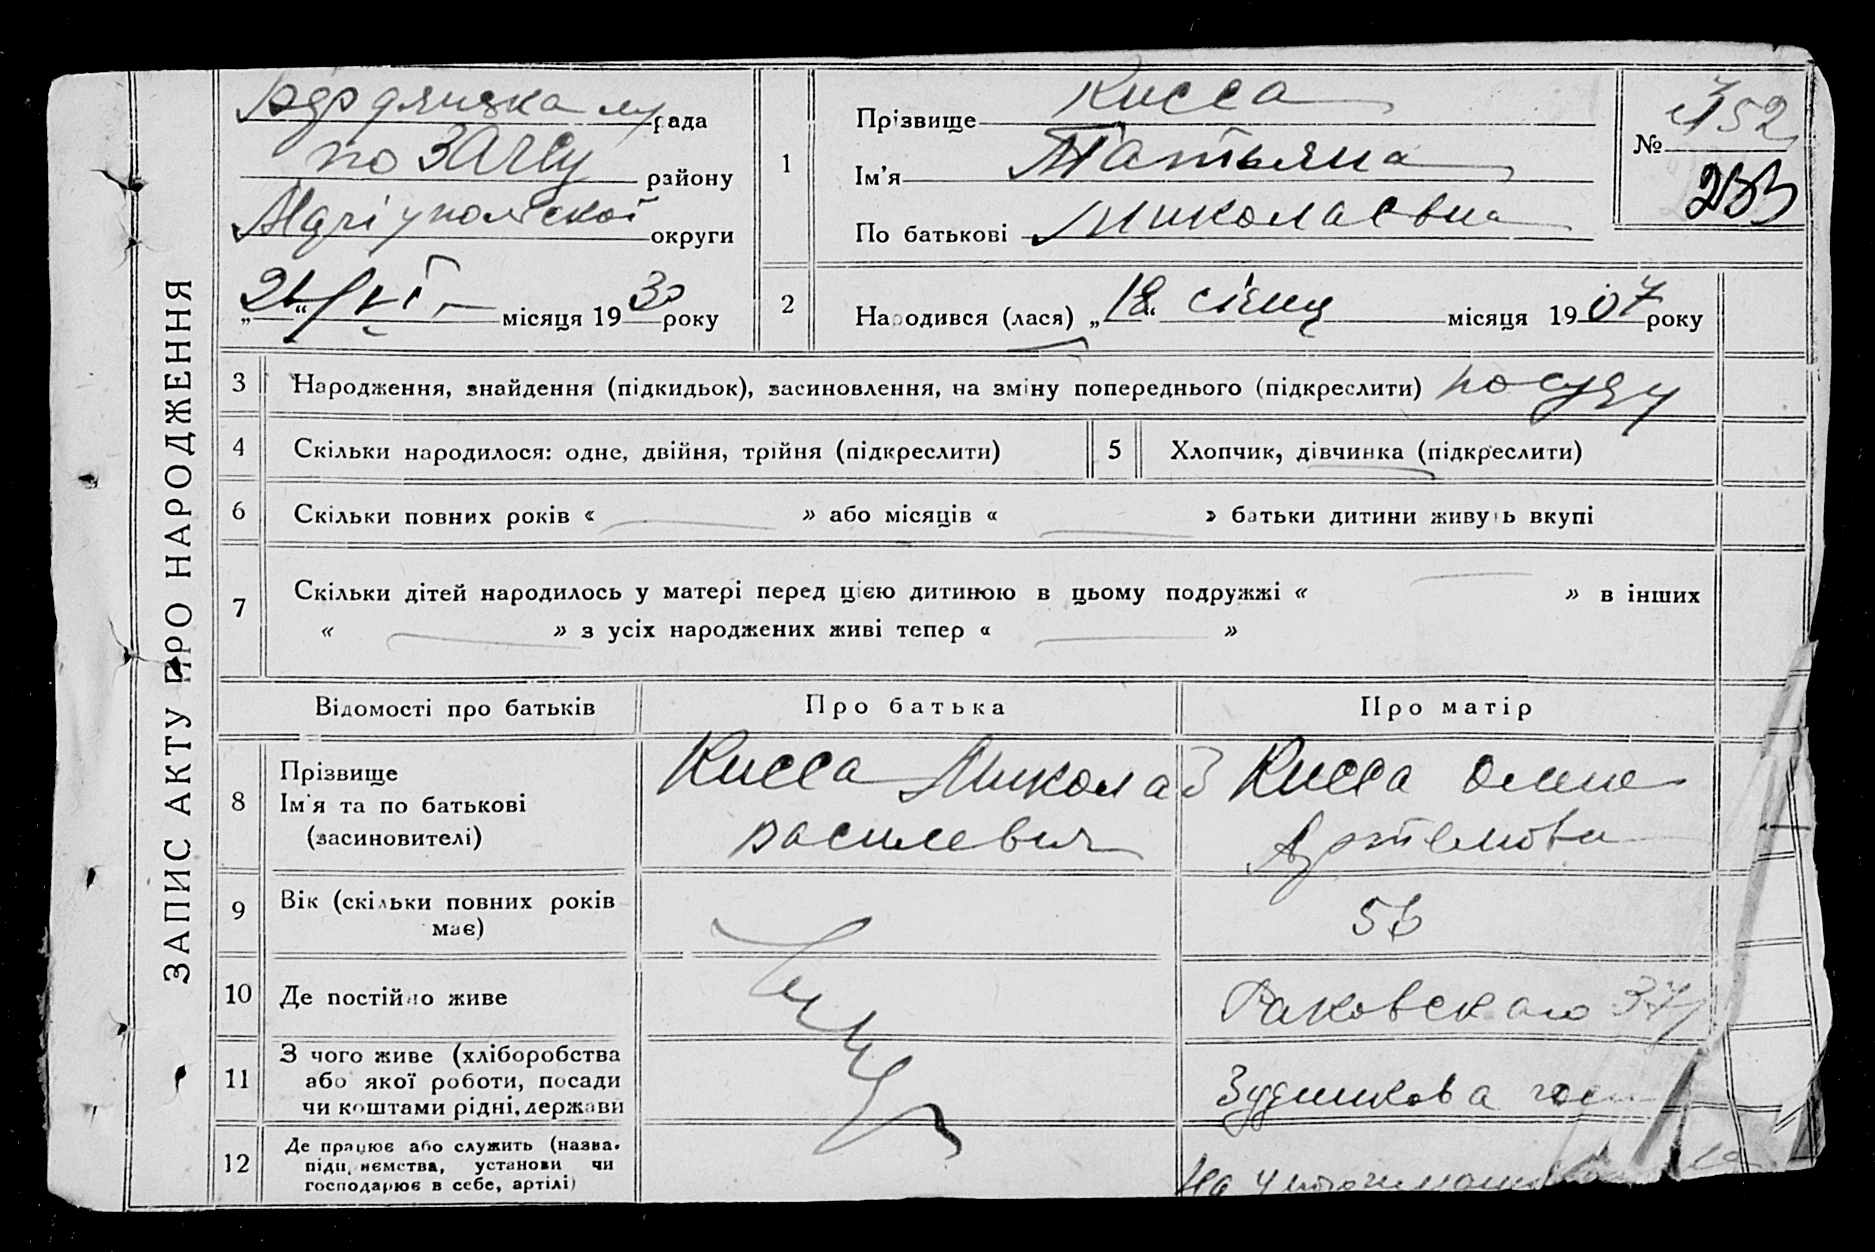 ЗАПИС АКТУ ПРО НАРОДЖЕННЯ
Бердянська м рада
по ЗАГСу району
Маріупольської округи
„21“ VI місяця 1930 року
1
Прізвище Кисса
Ім'я Татьяна
По батькові Миколаевна
№ 352
233
2
Народився (лася) „18“ січня місяця 1907 року
3 Народження, знайдення (підкидьок), засиновлення, на зміну попереднього (підкреслити) по суду
4 Скільки народилося: одне, двійня, трійня (підкреслити)
5 Хлопчик, дівчинка (підкреслити)
6 Скільки повних років « » або місяців « » батьки дитини живуть вкупі
7 Скільки дітей народилось у матері перед цією дитиною в цьому подружжі « » в інших
« » з усіх народжених живі тепер « »
Відомості про батьків
Про батька
Про матір
8 Прізвище
Ім'я та по батькові
(засиновителі)
Кисса Микола
василевич
Кисса Олена
Артемовна
9 Вік (скільки повних років
має)
56
10 Де постійно живе
Раковского 37
11 З чого живе (хліборобства
або якої роботи, посади
чи коштами рідні, держави
12 Де працює або служить (назва
підприємства, установи чи
господарює в себе, артілі)
На